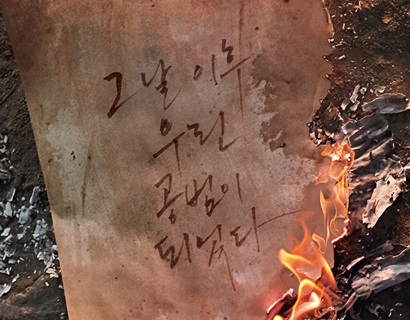 그날 이후
우린
공범이
되었다